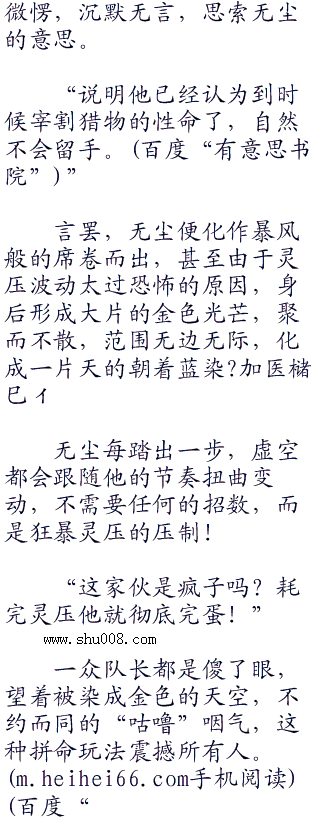 微愣，沉默无言，思索无尘
的意思。
“说明他已经认为到时
候宰割猎物的性命了，自然
不会留手。(百度“有意思书
院”)”
言罢，无尘便化作暴风
般的席卷而出，甚至由于灵
压波动太过恐怖的原因，身
后形成大片的金色光芒，聚
而不散，范围无边无际，化
成一片天的朝着蓝染?加医槠
巳亻
无尘每踏出一步，虚空
都会跟随他的节奏扭曲变
动，不需要任何的招数，而
是狂暴灵压的压制！
“这家伙是疯子吗？耗
完灵压他就彻底完蛋！”
www.shu008.com
一众队长都是傻了眼，
望着被染成金色的天空，不
约而同的“咕噜”咽气，这
种拼命玩法震撼所有人。
(m.heihei66.com手机阅读)
(百度“